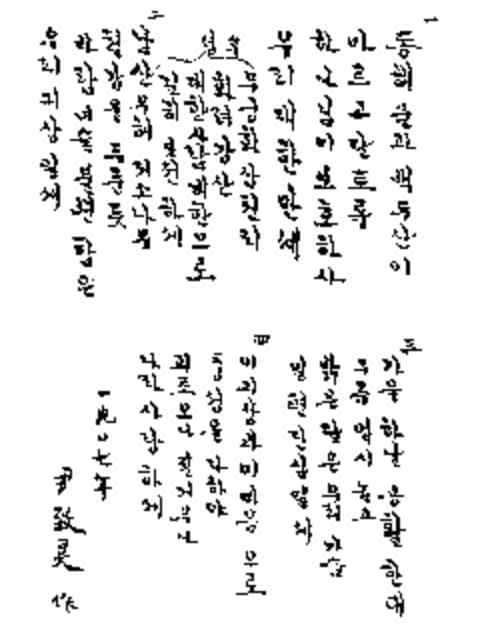 一
동해물과 백두산이
마르고 달토록
하나님이 보호하사
우리 대한 만세
후렴
무궁화 삼천리
화려강산
대한사람 대한으로
길히 보전하세
二
남산우헤 저 소나무
철갑을 두른 듯
바람이슬 불변함은
우리 긔상일세
三
가을하날 공활한대
구름업시 놉고
밝은달은 우리가슴
일편단심일세
四
이긔상과 이마음으로
충성을 다하야
괴로오나 질거우나
나라사랑하세
一九〇七年
尹致昊 作